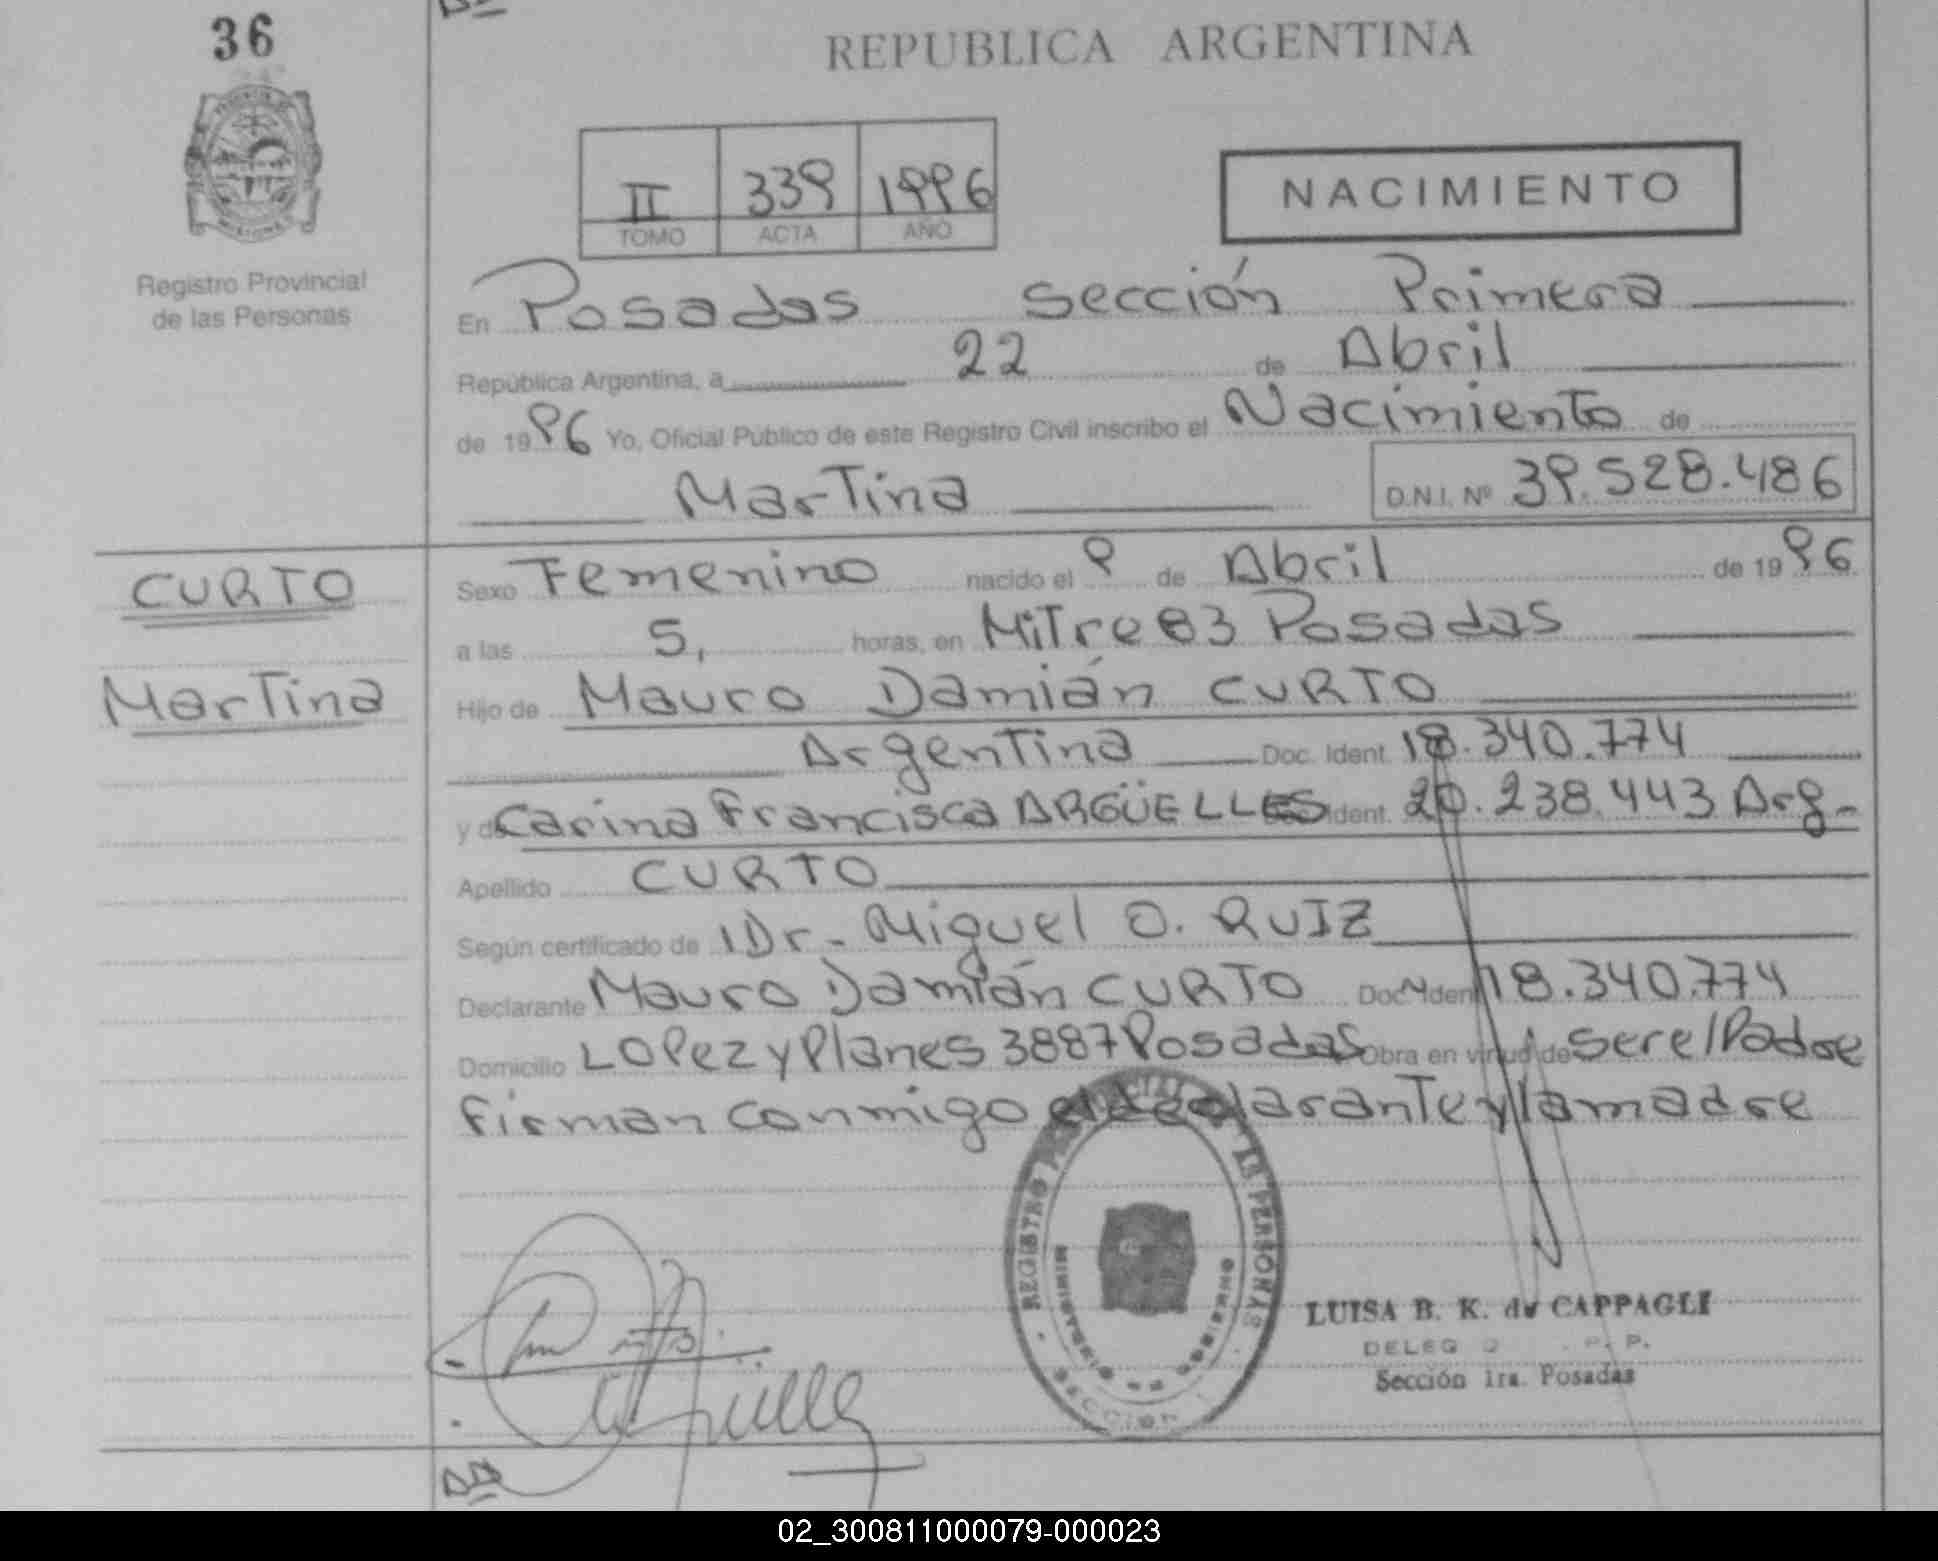 36
REPUBLICA ARGENTINA
Registro Provincial
de las Personas
II 339 1996
TOMO ACTA AÑO
NACIMIENTO
En Posadas Sección Primera
República Argentina, a 22 de Abril
de 1996 Yo, Oficial Público de este Registro Civil inscribo el Nacimiento de
Martina D.N.I. Nº 39.528.486
CURTO
Martina
Sexo Femenino nacido el 9 de Abril de 1996
a las 5, horas, en Mitre 83 Posadas
Hijo de Mauro Damián CURTO
Argentina Doc. Ident. 18.340.774
y de Carina Francisca ARGÜELLES Ident. 20.238.443 Arg-
Apellido CURTO
Según certificado de Dr- Miguel O. RUIZ
Declarante Mauro Damián CURTO Doc. Ident 18.340.774
Domicilio LOPez y Planes 3887 Posadas Obra en virtud de ser el Padre
firman conmigo el declarante y la madre
REGISTRO PROVINCIAL DE LAS PERSONAS
MINISTERIO DE GOBIERNO
SECCION 1
LUISA B. K. de CAPPAGLI
DELEG P. P.
Sección 1ra. Posadas
02_300811000079-000023